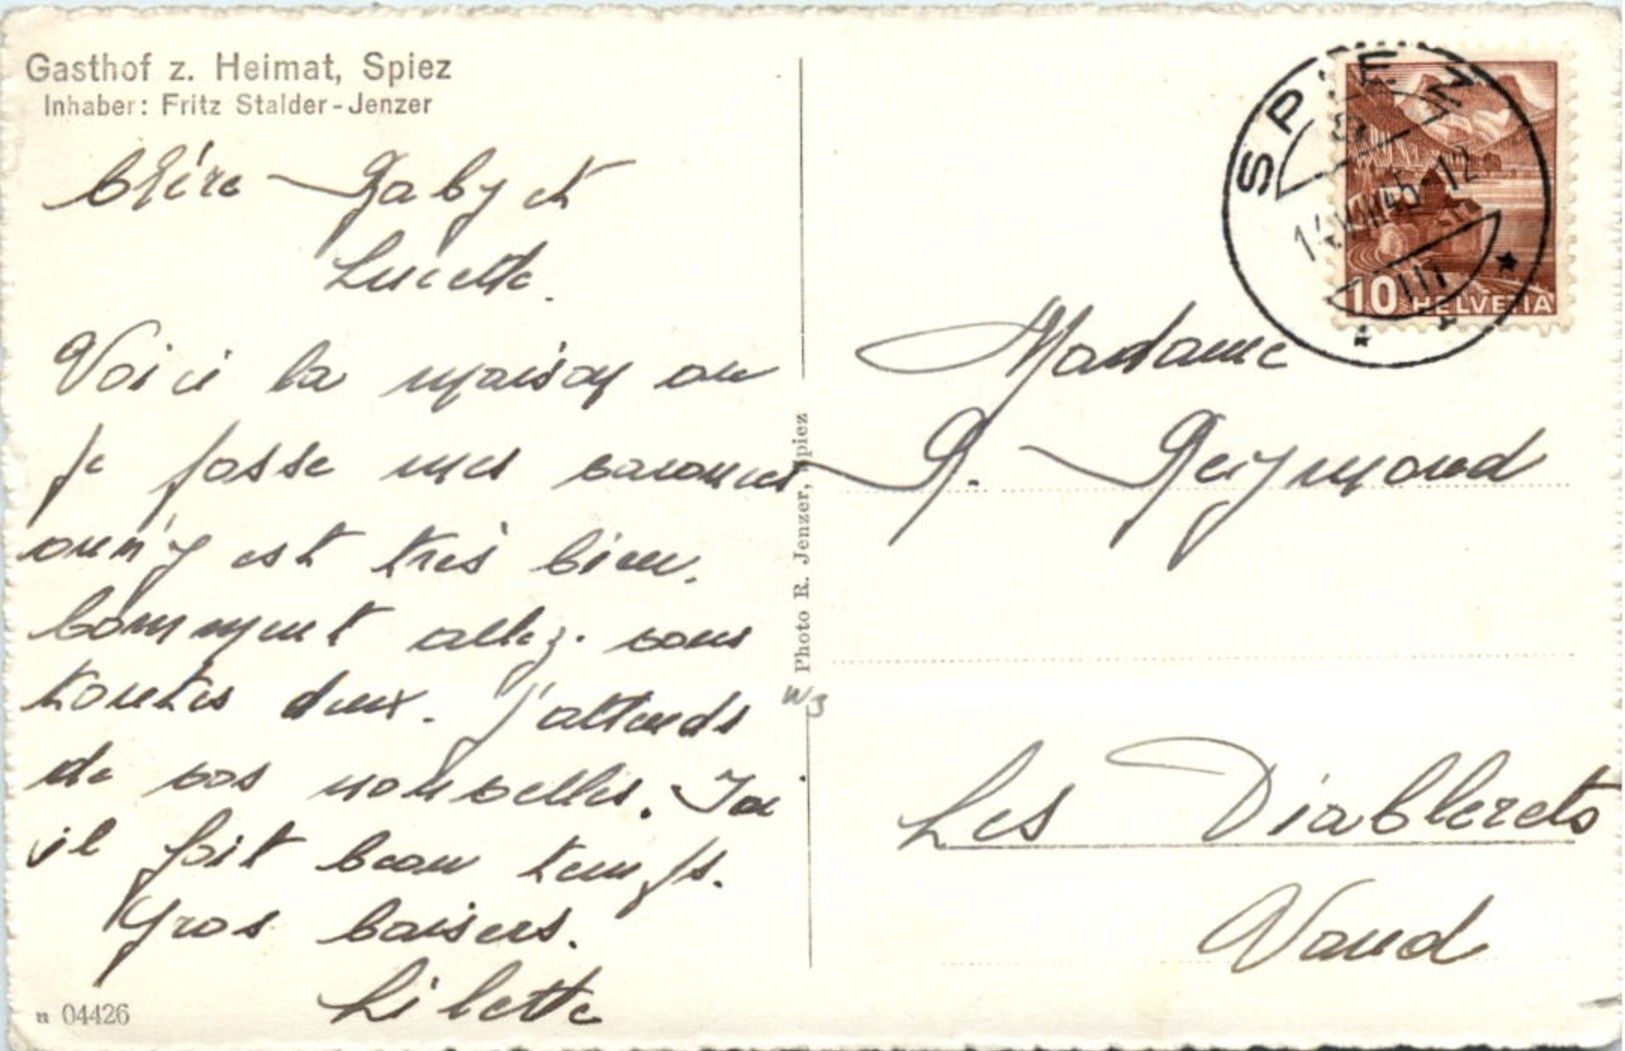 Gasthof z. Heimat, Spiez
Inhaber: Fritz Stalder-Jenzer
Chère Gaby et
Lucette.
Voici la maison ou
je passe mes vacances
on n'y est très bien.
Comment allez-vous
toutes deux. J'attends
de vos nouvelles. Ici
il fait beau temps.
Gros baisers.
Lilette
04426
Photo R. Jenzer, Spiez
W3
SPIEZ
14.VIII.45-12
10 HELVETIA
Madame
G. Reymond
Les Diablerets
Vaud